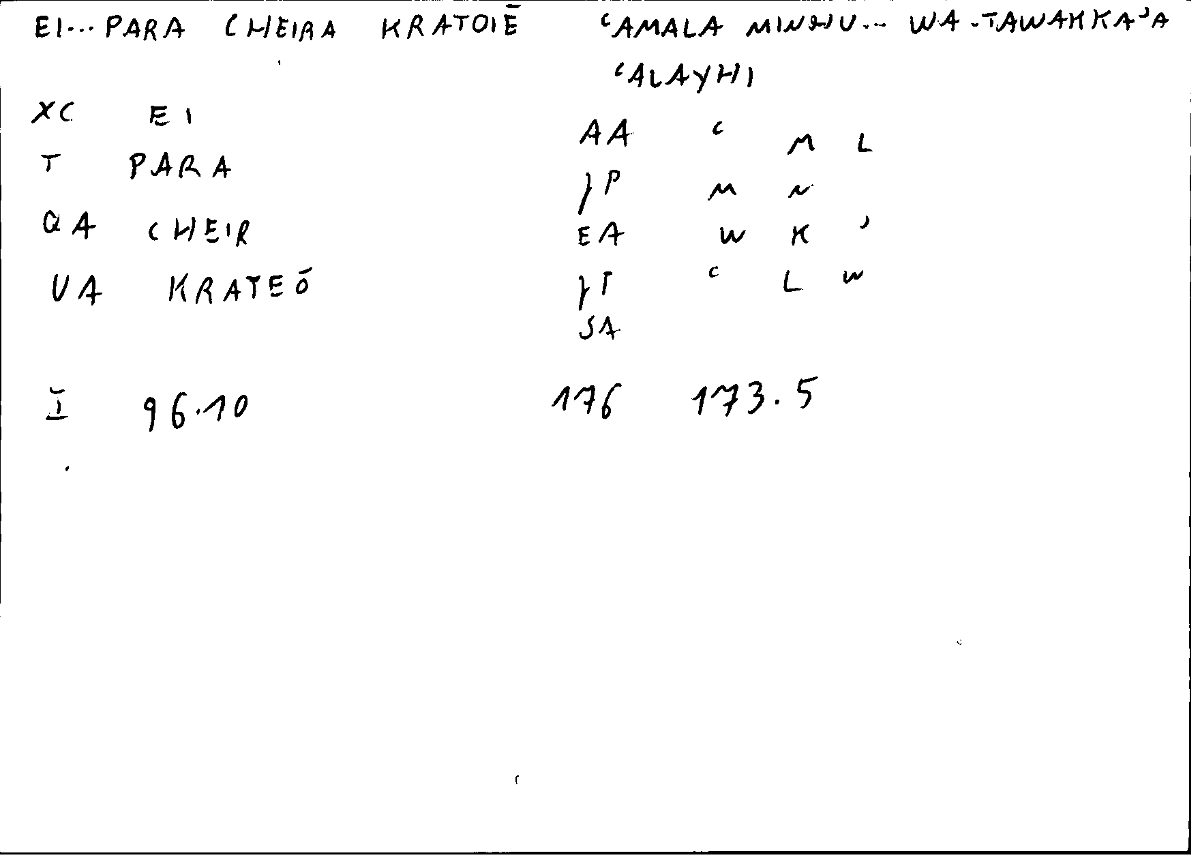 EI... PARA CHEIRA KRATOIĒ ʿAMALA MINHU... WA-TAWAKKAʾA
ʿALAYHI
XC EI AA ʿ M L
T PARA JP M N
QA CHEIR EA W K ʾ
VA KRATEŌ JT ʿ L W
SA
I 96.10 176 173.5